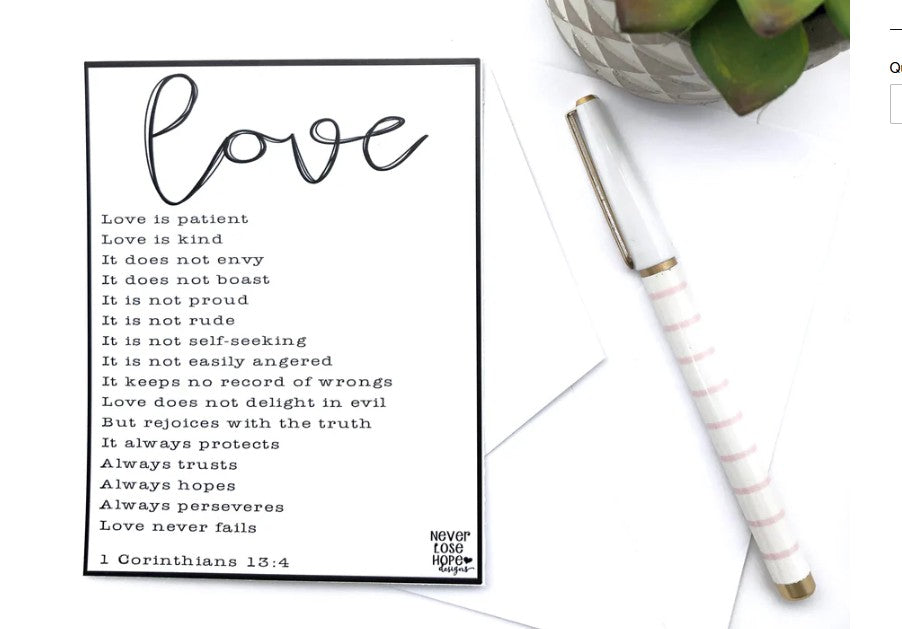 love
Love is patient
Love is kind
It does not envy
It does not boast
It is not proud
It is not rude
It is not self-seeking
It is not easily angered
It keeps no record of wrongs
Love does not delight in evil
But rejoices with the truth
It always protects
Always trusts
Always hopes
Always perseveres
Love never fails
1 Corinthians 13:4
Never
Lose
Hope
designs
Qu